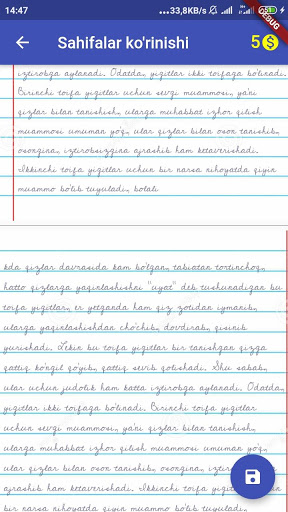 14:47
...33,8KB/s
DEBUG
Sahifalar ko'rinishi
5
iztirobga aylanadi. Odatda, yigitlar ikki toifaga bo'linadi.
Birinchi toifa yigitlar uchun sevgi muammosi, ya'ni
qizlar bilan tanishish, ularga muhabbat izhor qilish
muammosi umuman yo'q, ular qizlar bilan oson tanishib,
osongina, iztirobsizgina ajrashib ham ketaverishadi.
Ikkinchi toifa yigitlar uchun bir narsa nihoyatda qiyin
muammo bo'lib tuyuladi, bolali
kda qizlar davrasida kam bo'lgan, tabiatan tortinchoq,
hatto qizlarga yaqinlashishni "uyat" deb tushunadigan bu
toifa yigitlar, er yetganda ham qiz zotidan iymanib,
ularga yaqinlashishdan cho'chib, dovdirab, qisinib
yurishadi. Lekin bu toifa yigitlar bir tanishgan qizga
qattiq ko'ngil qo'yib, qattiq sevib qolishadi. Shu sabab,
ular uchun judolik ham katta iztirobga aylanadi. Odatda,
yigitlar ikki toifaga bo'linadi. Birinchi toifa yigitlar
uchun sevgi muammosi, ya'ni qizlar bilan tanishish,
ularga muhabbat izhor qilish muammosi umuman yo'q,
ular qizlar bilan oson tanishib, osongina,
ajrashib ham ketaverishadi. Ikkinchi toifa yigitlar
bir narsa nihoyatda qiyin muammo bo'lib tuyuladi